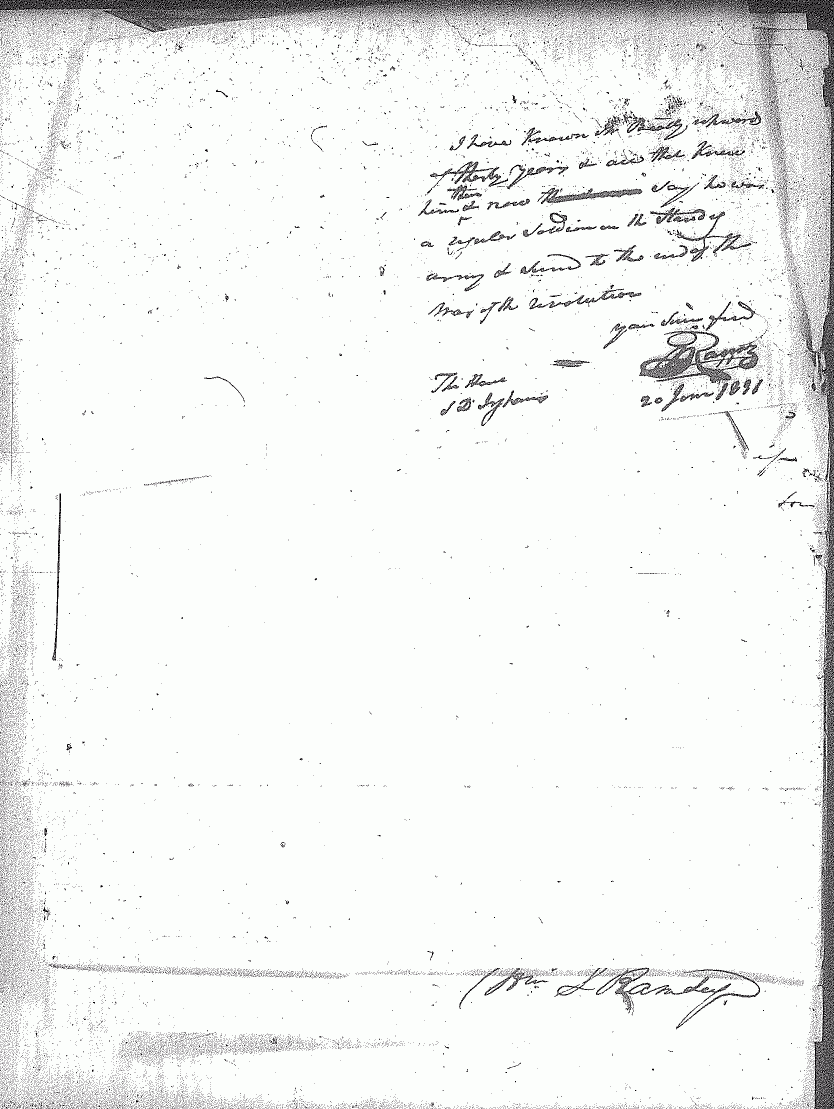 I have Known Mr Beatty upward
of thirty years & all that Knew
him then & now say he was
a regular Soldier in the Standg
army & served to the end of the
War of the revolution
your Sinr frnd
Ramsey
The Hone
S D Ingham
20 June 1831
Ramsey